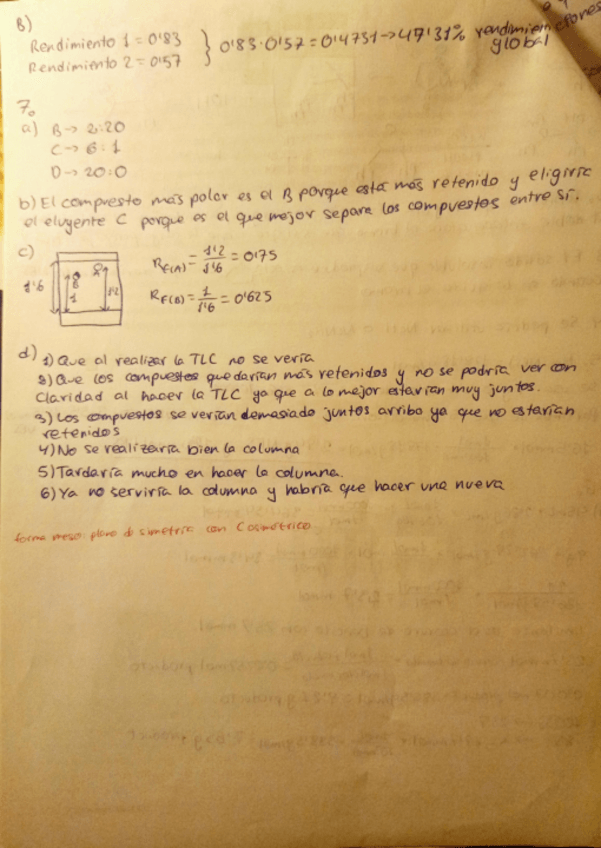 B)
Rendimiento 1 = 0'83
Rendimiento 2 = 0'57 } 0'83·0'57 = 0'4731 → 47'31% rendimiento
global
7.
a) B → 2:20
C → 6:1
D → 20:0
b) El compuesto más polar es el B porque está más retenido y eligiría
el eluyente C porque es el que mejor separa los compuestos entre sí.
c) R_F(A) = 1'2 / 1'6 = 0'75
1'6 1 1'2
R_F(B) = 1 / 1'6 = 0'625
d) 1) Que al realizar la TLC no se vería
2) Que los compuestos quedarían más retenidos y no se podría ver con
claridad al hacer la TLC ya que a lo mejor estarían muy juntos.
3) Los compuestos se verían demasiado juntos arriba ya que no estarían
retenidos
4) No se realizaría bien la columna
5) Tardaría mucho en hacer la columna.
6) Ya no serviría la columna y habría que hacer una nueva
forma meso: plano de simetría con C